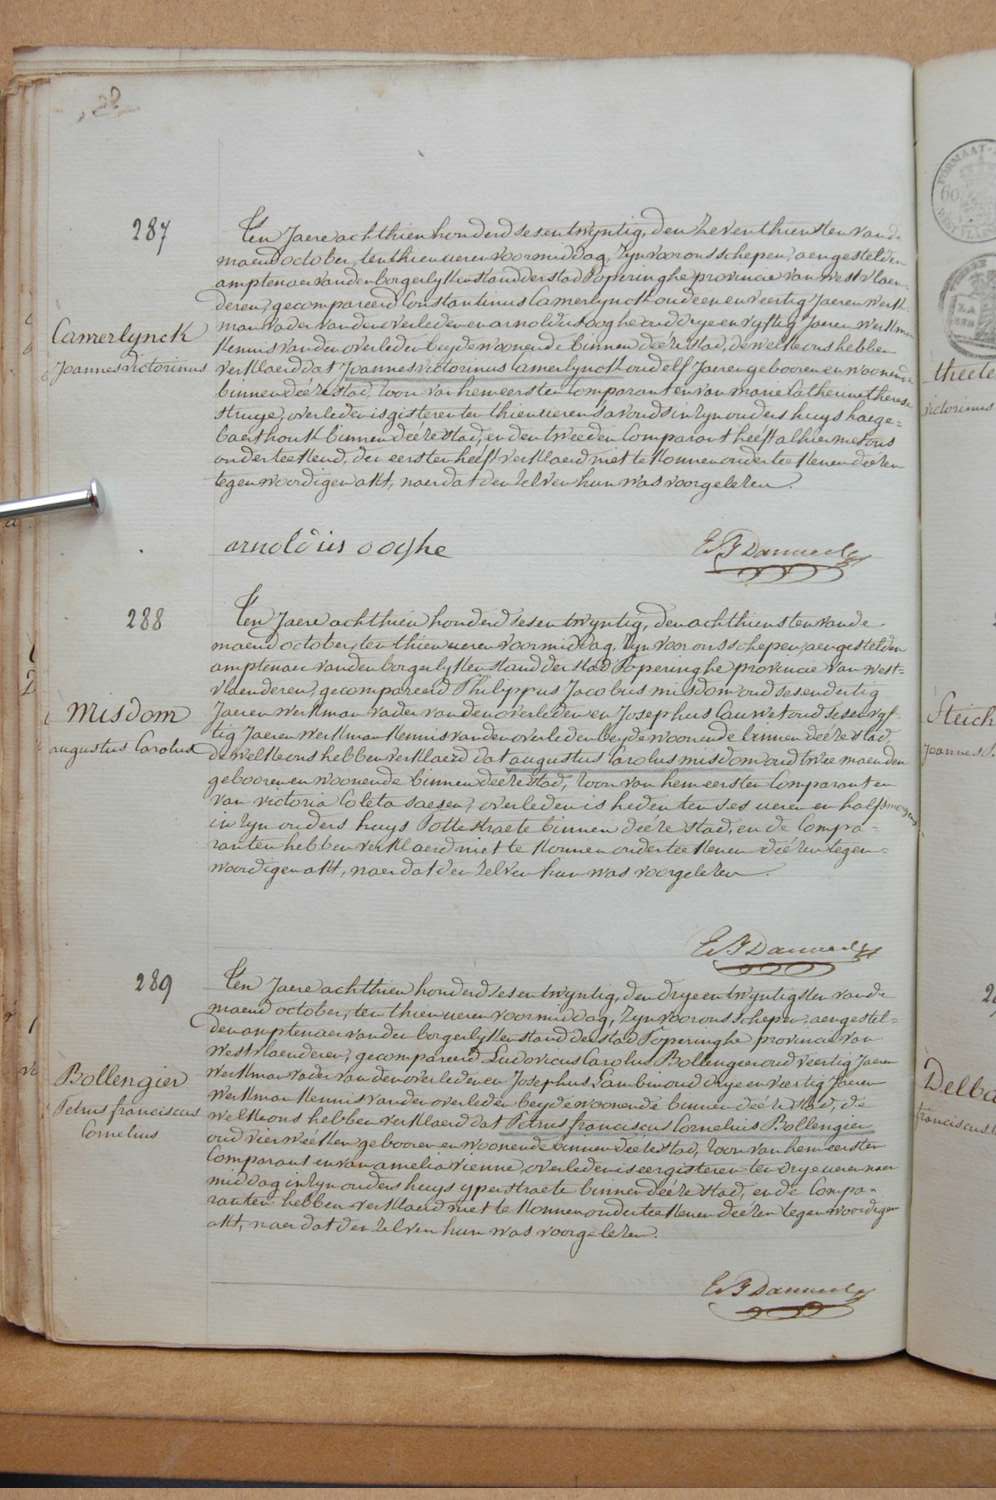 287
Camerlynck
Joannes victorinus
Ten Jaere achthien honderd sesentwyntig, den zeventhiensten van de
maend october, ten thien ueren voormiddag, zyn voor ons schepen, aengestelden
amptenaer van den borgerlyken stand der stad Poperinghe provincie van westvlaen-
deren, gecompareerd Constantinus Camerlynck oud een en veertig Jaeren werk-
man vader van den overleden en arnoldus ooghe oud drye en vyftig Jaeren werkman
kennis van den overleden beyde woonende binnen deéze stad, de welke ons hebben
verklaerd dat Joannes victorinus Camerlynck oud elf Jaeren gebooren en woonende
binnen deéze stad, zoon van hem eersten Comparant en van marie Catherine therese
struye, overleden is gisteren ten thien ueren s'avonds in zyn ouders huys haege-
baerthoek binnen deéze stad, en den tweeden Comparant heéft alhier met ons
onderteekend, den eersten heéft verklaerd niet te konnen onderteekenen deézen
tegenwoordigen akt, naer dat den zelven hun was voorgelezen.
arnoldus ooghe
288
misdom
augustus Carolus
Ten Jaere achthien honderd sesentwyntig, den achthiensten van de
maend october, ten thien ueren voormiddag, zyn voor ons schepen, aengestelden
amptenaer van den borgerlyken stand der stad Poperinghe provincie van west-
vlaenderen, gecompareerd Philyppus Jacobus misdom oud sesendertig
Jaeren werkman vader van den overleden en Josephus Cauwet oud sesenvyf-
tig Jaeren werkman kennis van den overleden beyde woonende binnen deéze stad,
de welke ons hebben verklaerd dat augustus Carolus misdom oud twee maenden
gebooren en woonende binnen deéze stad, zoon van hem eersten Comparant en
van victoria Coleta saesen, overleden is heden ten ses ueren en half smorgens
in zyn ouders huys Pottestraete binnen deéze stad, en de Compa-
ranten hebben verklaerd niet te konnen onderteekenen deézen tegen-
woordigen akt, naer dat den zelven hun was voorgelezen.
289
Bollengier
Petrus franciscus
Cornelius
Ten Jaere achthien honderd sesentwyntig, den drye en twyntigsten van de
maend october, ten thien ueren voormiddag, zyn voor ons schepen, aengestel-
den amptenaer van den borgerlyken stand der stad Poperinghe provincie van
westvlaenderen, gecompareerd Ludovicus Carolus Bollengier oud veertig Jaeren
werkman vader van den overleden en Josephus Lambin oud drye en veertig Jaeren
werkman kennis van den overleden beyde woonende binnen deéze stad, de
welke ons hebben verklaerd dat Petrus franciscus Cornelius Bollengier
oud vier weéken gebooren en woonende binnen deéze stad, zoon van hem eersten
Comparant en van amelia vienne, overleden is eergisteren ten drye ueren naer
middag in zyn ouders huys yperstraete binnen deéze stad, en de Compa-
ranten hebben verklaerd niet te konnen onderteekenen deézen tegenwoordigen
akt, naer dat den zelven hun was voorgelezen.